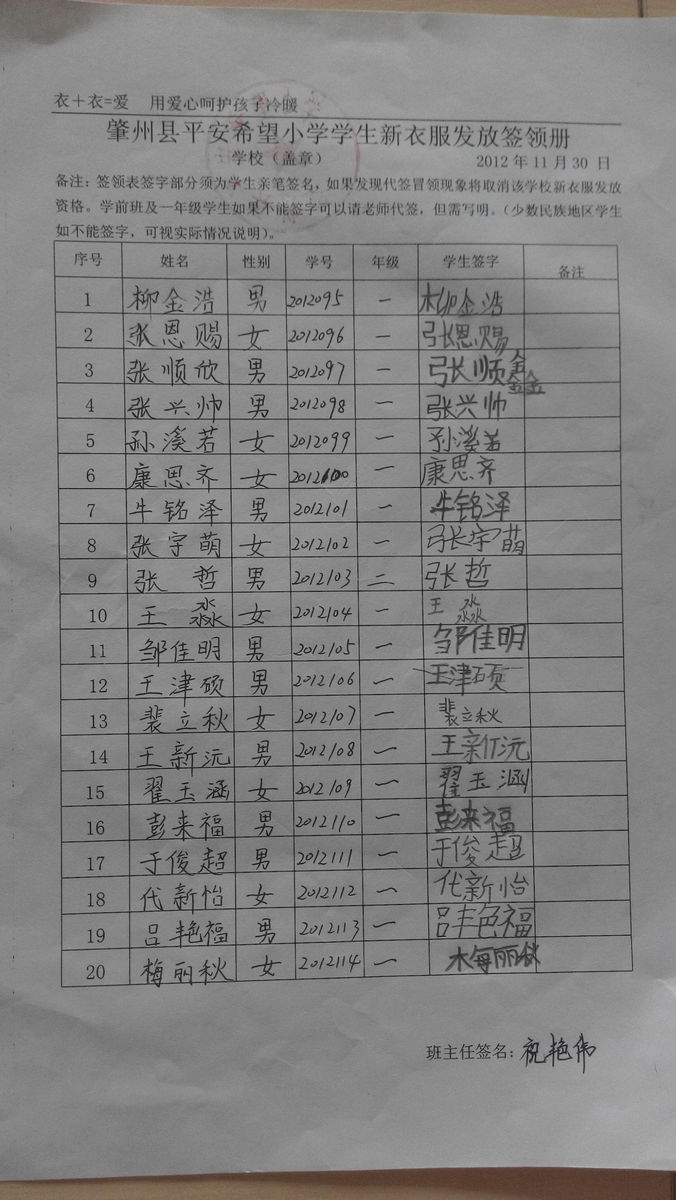 衣＋衣=爱 用爱心呵护孩子冷暖
肇州县平安希望小学学生新衣服发放签领册
学校（盖章） 2012 年 11 月 30 日
备注：签领表签字部分须为学生亲笔签名，如果发现代签冒领现象将取消该学校新衣服发放
资格。学前班及一年级学生如果不能签字可以请老师代签，但需写明。（少数民族地区学生
如不能签字，可视实际情况说明）。
序号 姓名 性别 学号 年级 学生签字 备注
1 柳金浩 男 2012095 一 柳金浩
2 张恩赐 女 2012096 一 张恩赐
3 张顺欣 男 2012097 一 张顺鑫
4 张兴帅 男 2012098 一 张兴帅
5 孙溪若 女 2012099 一 孙溪若
6 康思齐 女 2012100 一 康思齐
7 牛铭泽 男 2012101 一 牛铭泽
8 张宇萌 女 2012102 一 张宇萌
9 张哲 男 2012103 二 张哲
10 王淼 女 2012104 一 王淼
11 邹佳明 男 2012105 一 邹佳明
12 王津硕 男 2012106 一 王津硕
13 裴立秋 女 2012107 一 裴立秋
14 王新沅 男 2012108 一 王新沅
15 翟玉涵 女 2012109 一 翟玉涵
16 彭来福 男 2012110 一 彭来福
17 于俊超 男 2012111 一 于俊超
18 代新怡 女 2012112 一 代新怡
19 吕艳福 男 2012113 一 吕艳福
20 梅丽秋 女 2012114 一 梅丽秋
班主任签名：祝艳伟